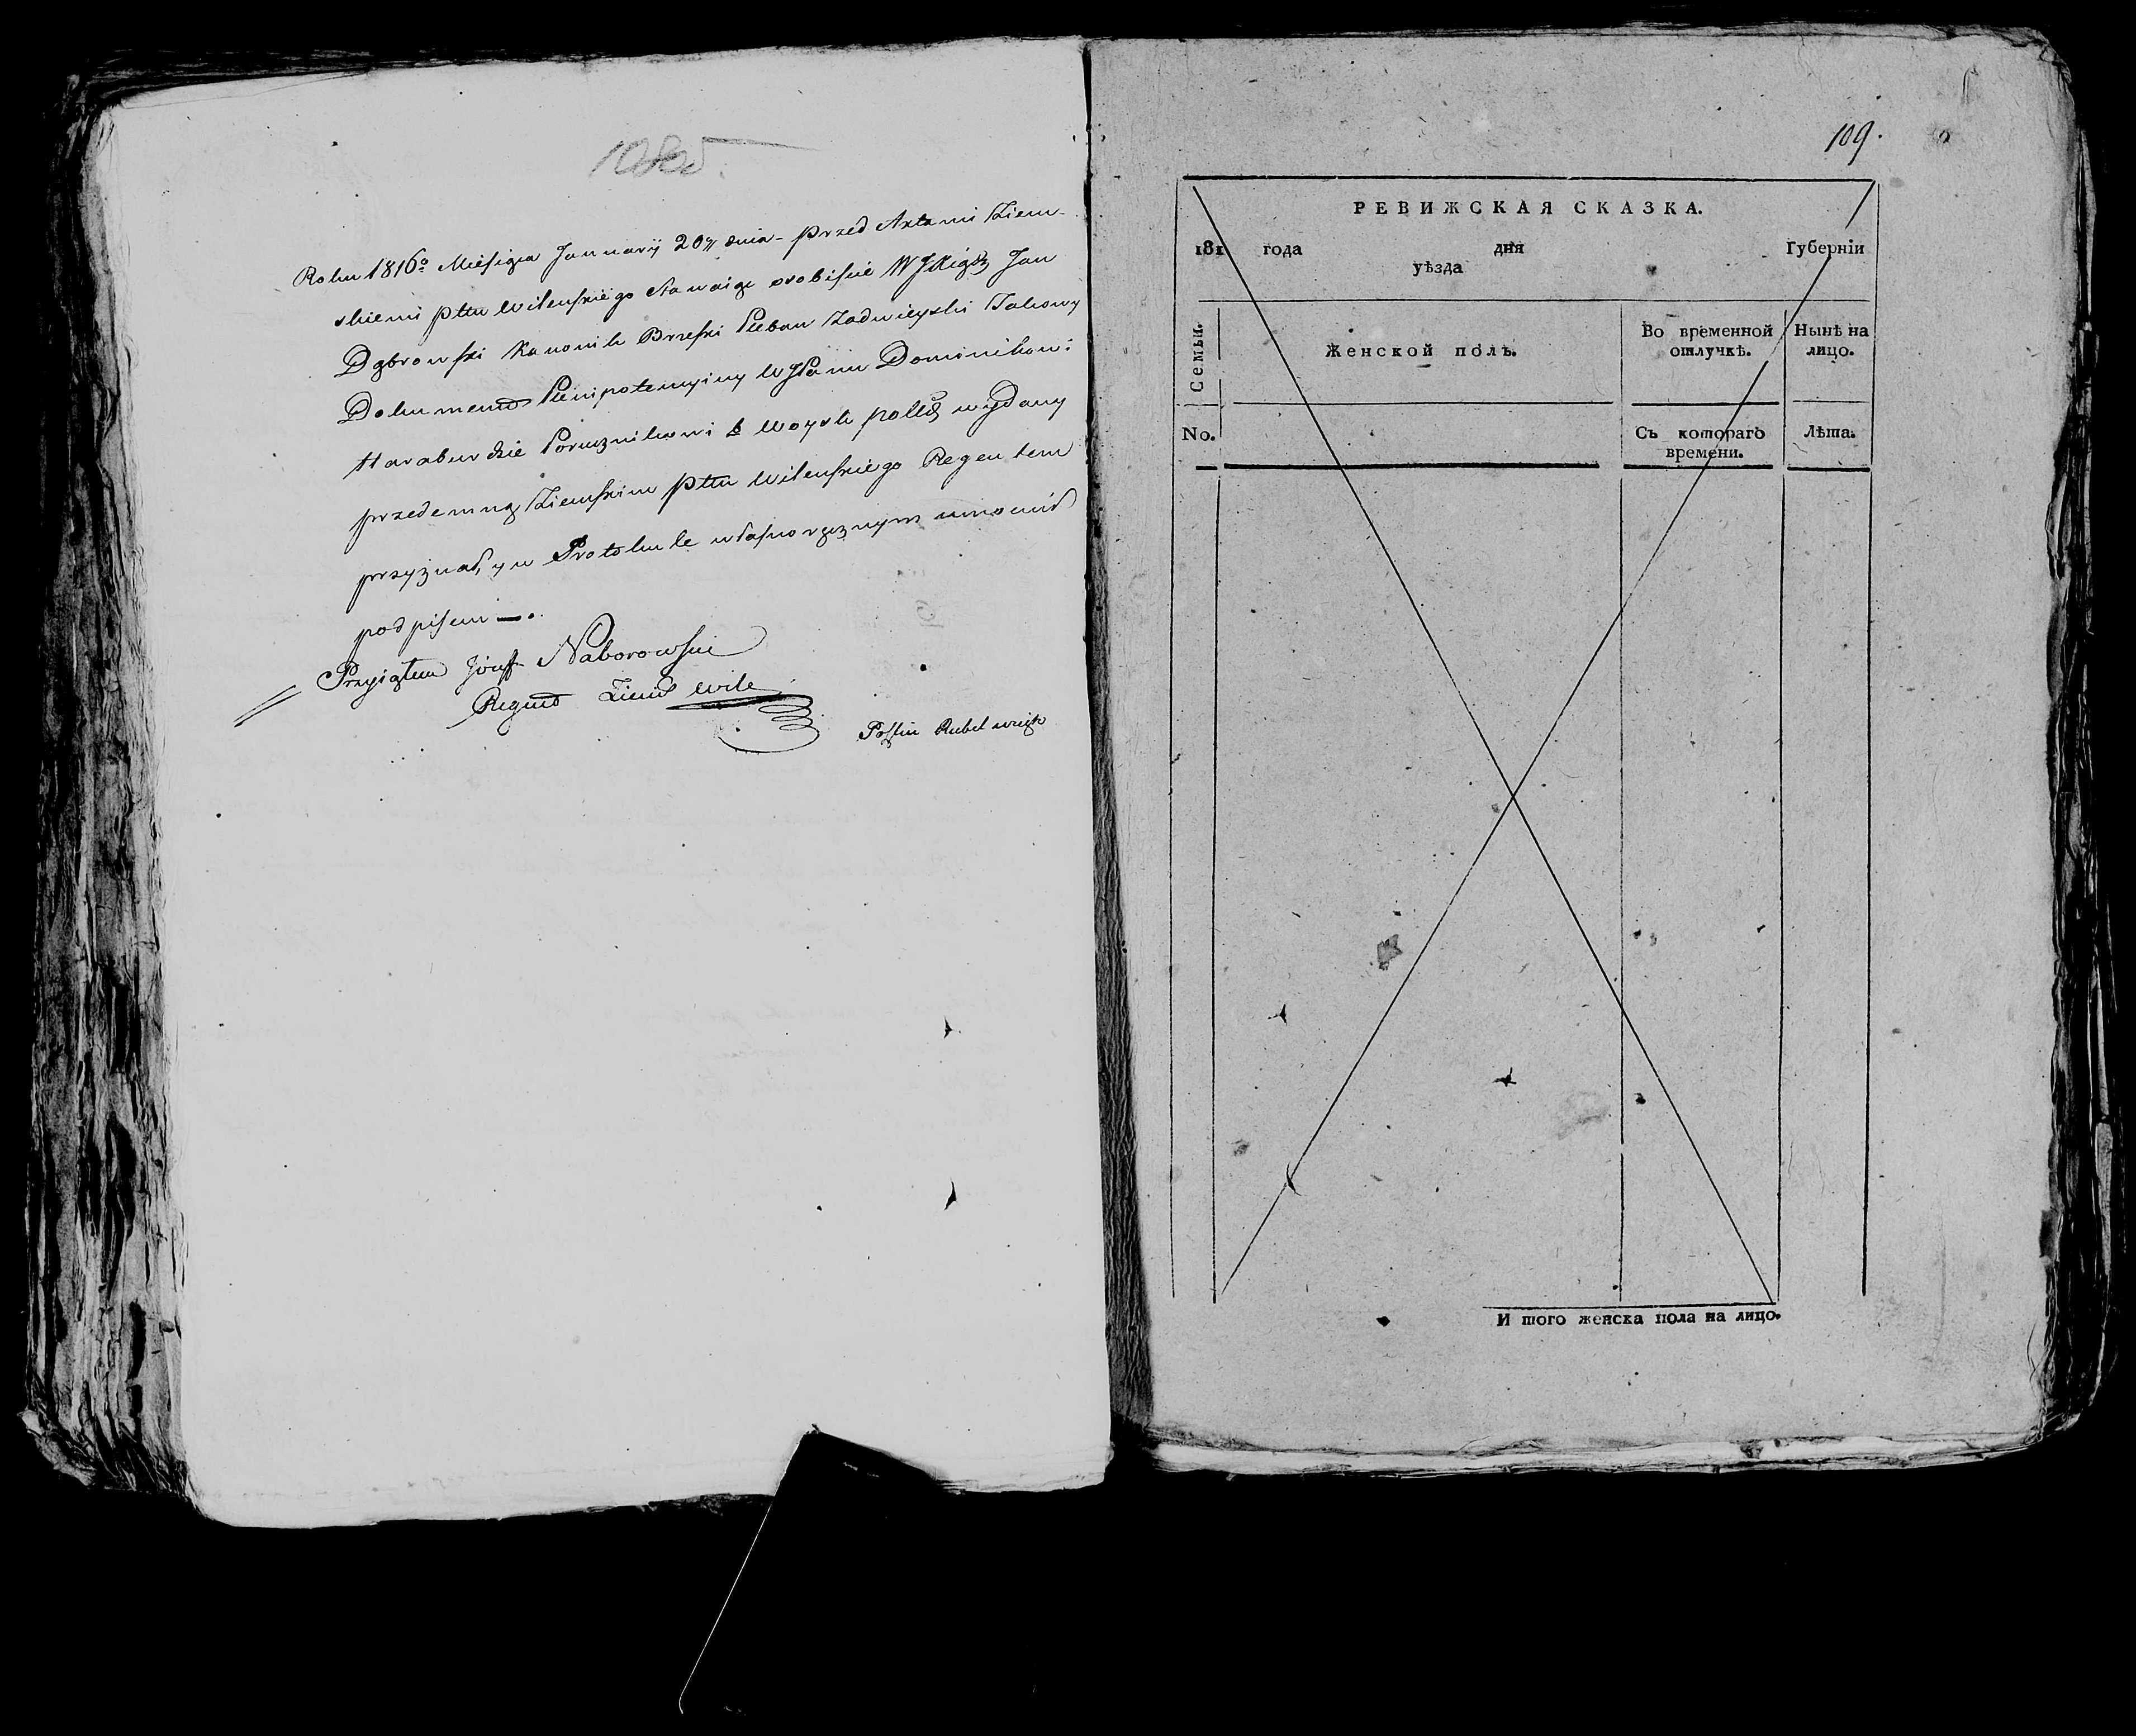 108об.
Roku 1816o Miesiąca Januarij 20 dnia - przed Aktami Ziem-
skiemi pttu Wileńskiego stawaiąc osobiście WJXiądz Jan
Dąbrowski Kanonik Brzeski Pleban takowy
Dokument Plenipotencyiny WJPanu Dominikowi
Haraburdzie Porucznikowi b Woysk polld wydany
przedemną Ziemskim pttu Wileńskiego Regentem
przyznał, y w Protokule własnoręcznym umocnił
podpisem —.
Przyiąłem Józeff Naborowski
Regent Ziems Wile
Rubel
109.
РЕВИЖСКАЯ СКАЗКА.
181 года дня Губерніи
уѣзда
Семьи.
Женской полъ.
Во временной отлучкѣ.
Нынѣ на лицо.
No.
Съ котораго времени.
Лѣта.
И того женска пола на лицо.